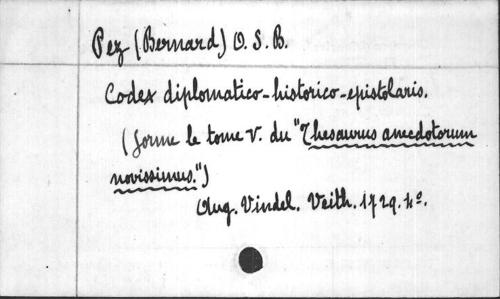 Pez (Bernard) O. S. B.
Codex diplomatico-historico-epistolaris.
(forme le tome V. du "Thesaurus anecdotorum
novissimus.")
Aug. Vindel. Veith. 1729. 4º.